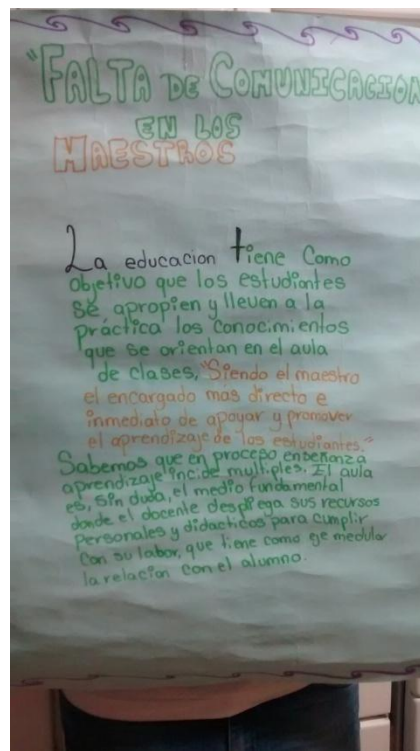 "FALTA DE COMUNICACION
EN LOS
MAESTROS
La educacion tiene Como
objetivo que los estudiantes
se apropien y lleven a la
práctica los conocimientos
que se orientan en el aula
de clases, "Siendo el maestro
el encargado mas directo e
inmediato de apoyar y promover
el aprendizaje de los estudiantes."
Sabemos que en proceso enseñanza
aprendizaje incide multiples. El aula
es, sin duda, el medio fundamental
donde el docente despliega sus recursos
Personales y didacticos para cumplir
Con su labor, que tiene como eje medular
la relacion con el alumno.